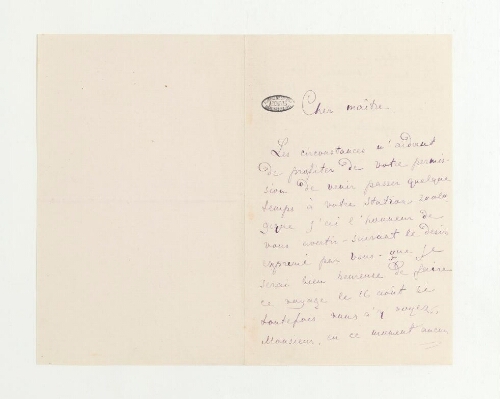 Cher maître.
Les circonstances m'aidant
de profiter de votre permis-
sion de venir passer quelque
temps à votre Station zoolo
gique j'ai l'honneur de
vous avertir - suivant le désir
exprimé par vous - que je
serais bien heureuse de faire
ce voyage le 16 août si
toutefois vous n'y voyez,
Monsieur, en ce moment aucun